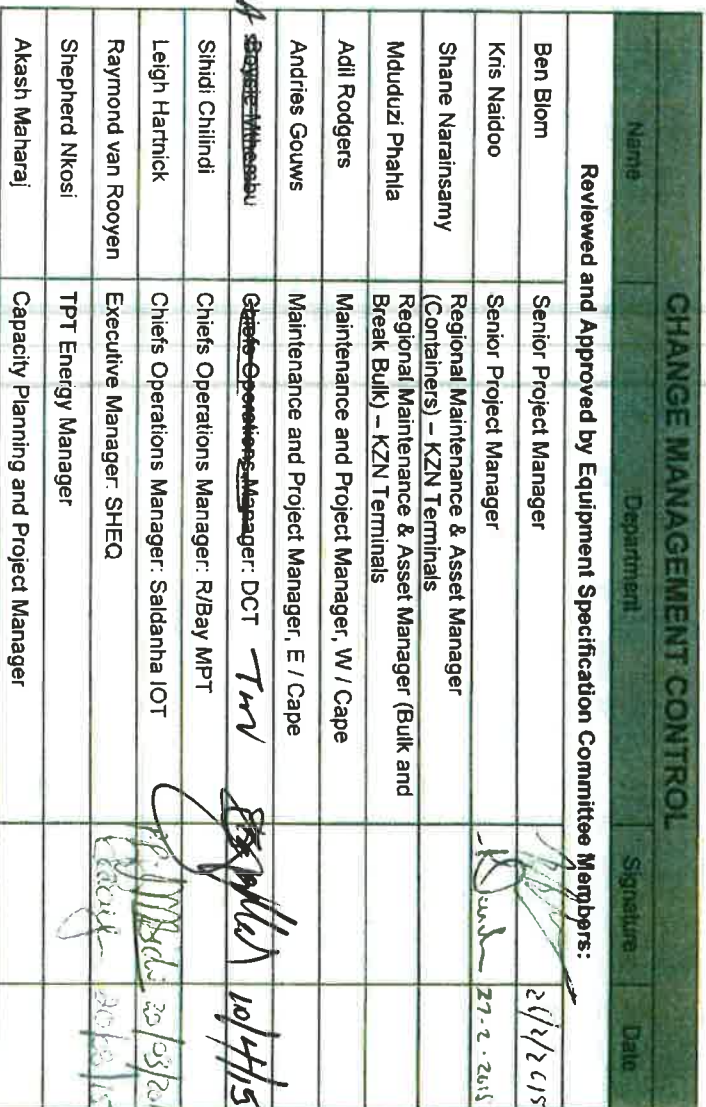 CHANGE MANAGEMENT CONTROL
Name Department Signature Date
Reviewed and Approved by Equipment Specification Committee Members:
Ben Blom Senior Project Manager
Kris Naidoo Senior Project Manager 27.2.2015
Shane Narainsamy Regional Maintenance & Asset Manager
(Containers) – KZN Terminals
Mduduzi Phahla Regional Maintenance & Asset Manager (Bulk and
Break Bulk) – KZN Terminals
Adil Rodgers Maintenance and Project Manager, W / Cape
Andries Gouws Maintenance and Project Manager, E / Cape
Boysie Mthembu Chiefs Operations Manager: DCT 10/4/15
Sihidi Chilindi Chiefs Operations Manager: R/Bay MPT
Leigh Hartnick Chiefs Operations Manager: Saldanha IOT
Raymond van Rooyen Executive Manager: SHEQ
Shepherd Nkosi TPT Energy Manager
Akash Maharaj Capacity Planning and Project Manager